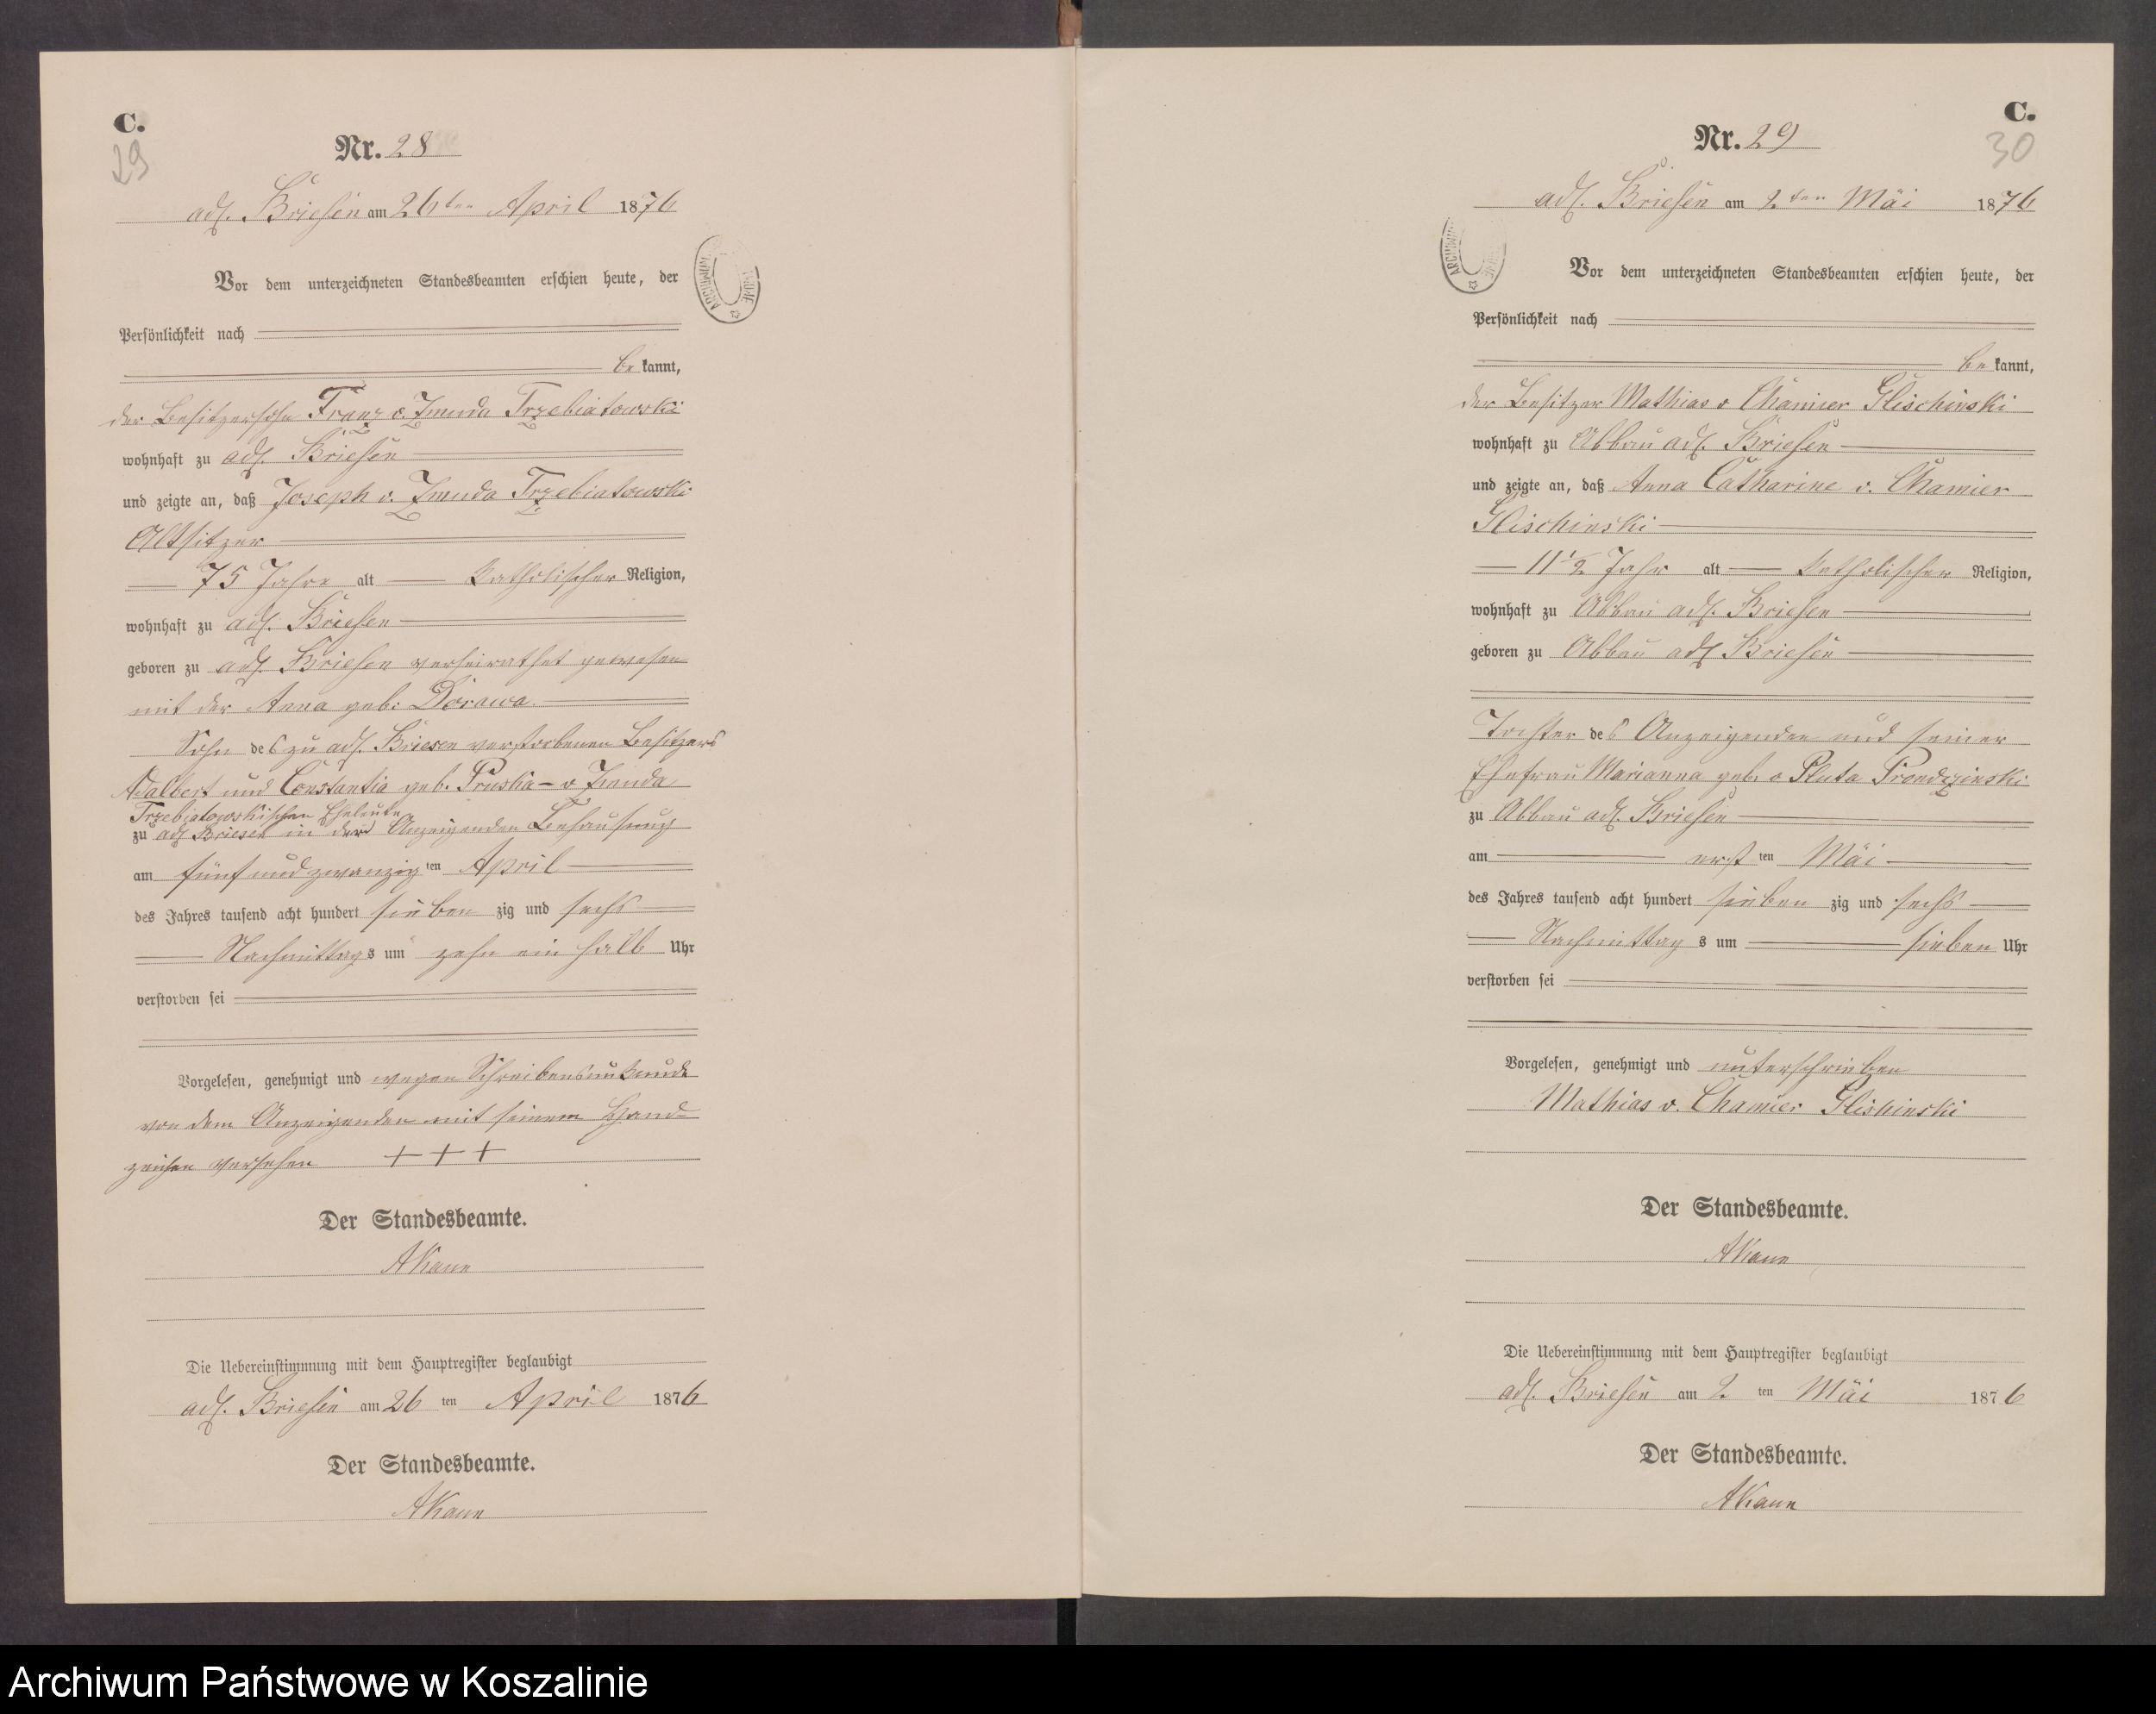 C.
29
Nr. 28
adl. Briesen am 26ten April 1876
Vor dem unterzeichneten Standesbeamten erschien heute, der
Persönlichkeit nach
be kannt,
der Besitzersohn Franz v. Zmuda Trzebiatowski
wohnhaft zu adl. Briesen
und zeigte an, daß Joseph v. Zmuda Trzebiatowski
Altsitzer
75 Jahre alt katholischer Religion,
wohnhaft zu adl. Briesen
geboren zu adl. Briesen verheirathet gewesen
mit der Anna geb: Dorawa
Sohn des zu adl. Briesen verstorbenen Besitzers
Adalbert und Constantia geb. Pruska - v Zmuda
Trzebiatowskischen Eheleute
zu adl Briesen in der Anzeigenden Behausung
am fünf und zwanzig ten April
des Jahres tausend acht hundert sieben zig und sechs
Nachmittags um zehn ein halb Uhr
verstorben sei
Vorgelesen, genehmigt und wegen Schreibensunkunde
von dem Anzeigenden mit seinem Hand-
zeichen versehen +++
Der Standesbeamte.
AKaun
Die Uebereinstimmung mit dem Hauptregister beglaubigt
adl. Briesen am 26 ten April 1876
Der Standesbeamte.
AKaun
C.
30
Nr. 29
adl. Briesen am 2ten Mai 1876
ARCHIWUM
Vor dem unterzeichneten Standesbeamten erschien heute, der
Persönlichkeit nach
be kannt,
der Besitzer Mathias v Chamier Glischinski
wohnhaft zu Abbau adl. Briesen
und zeigte an, daß Anna Catharine v. Chamier
Glischinski
11 1/2 Jahr alt katholischer Religion,
wohnhaft zu Abbau adl. Briesen
geboren zu Abbau adl Briesen
Tochter des Anzeigenden und seiner
Ehefrau Marianna geb. v Pluta Prondzinski
zu Abbau adl. Briesen
am erst ten Mai
des Jahres tausend acht hundert sieben zig und sechs
Nachmittag s um sieben Uhr
verstorben sei
Vorgelesen, genehmigt und unterschrieben
Mathias v. Chamier Glishinski
Der Standesbeamte.
AKaun
Die Uebereinstimmung mit dem Hauptregister beglaubigt
adl. Briesen am 2 ten Mai 1876
Der Standesbeamte.
AKaun
Archiwum Państwowe w Koszalinie